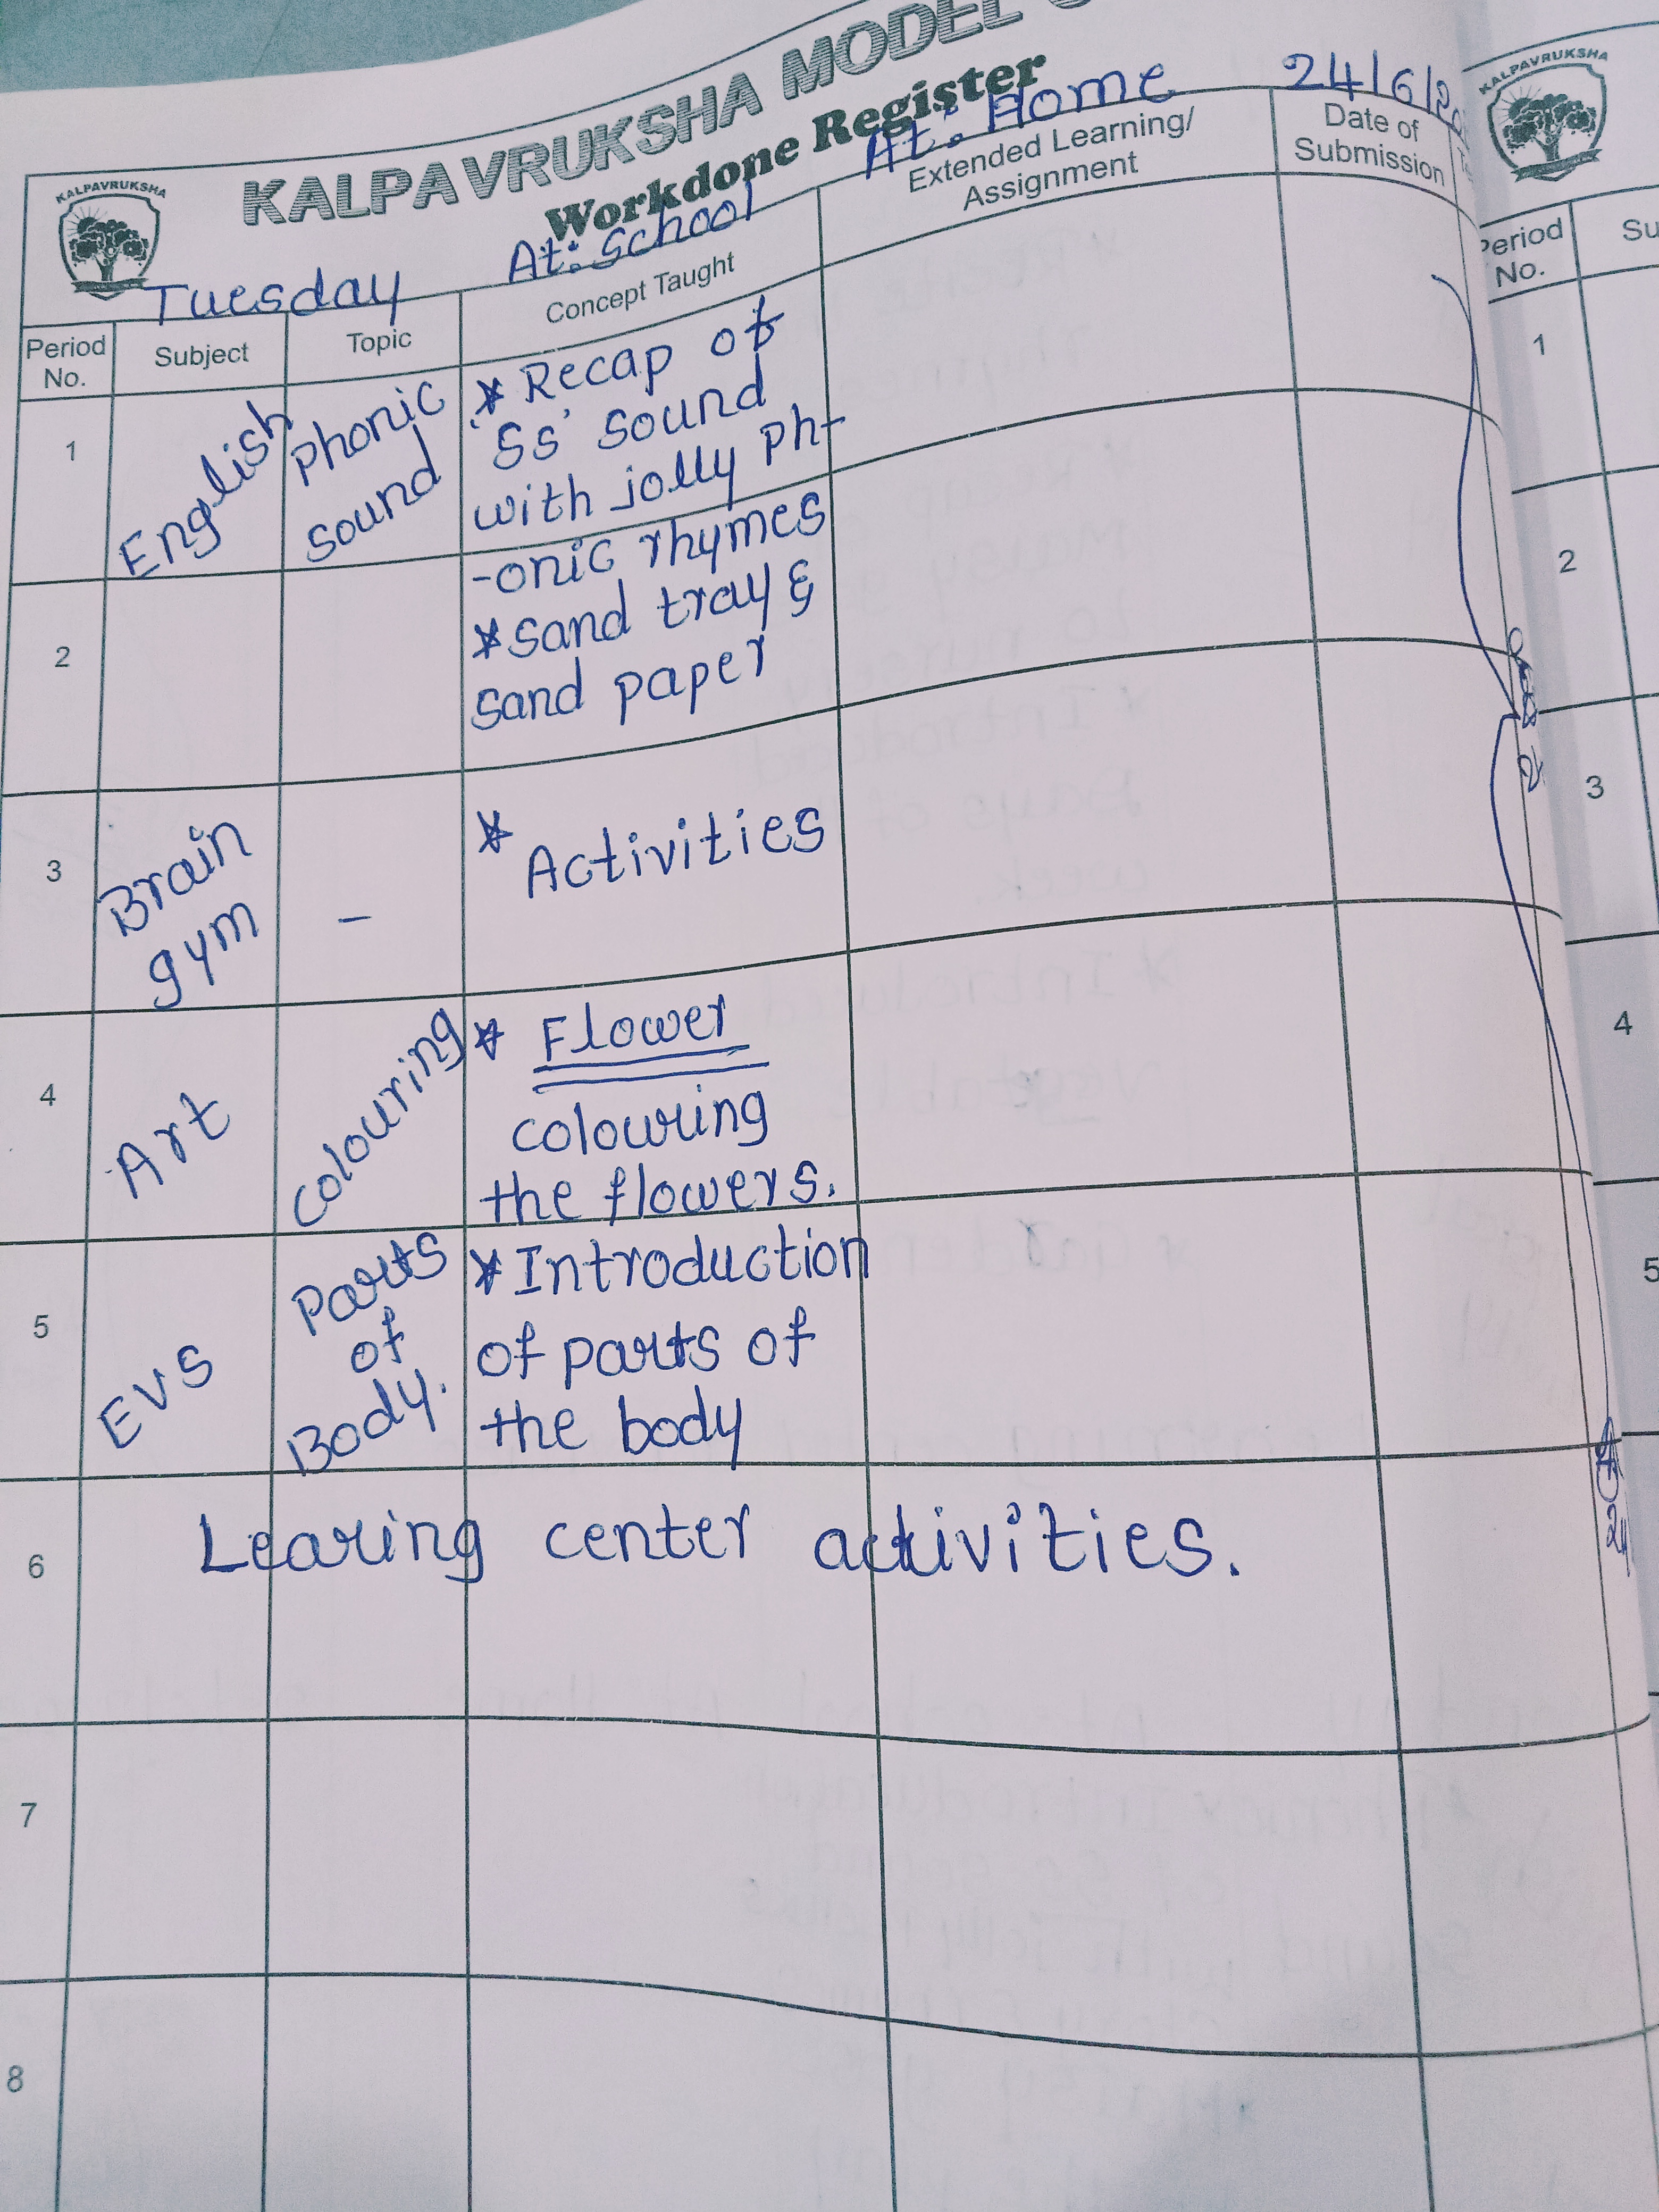 KALPAVRUKSHA MODEL
Workdone Register
KALPAVRUKSHA
Tuesday
At: School
At: Home
24/6/
Period No.
Subject
Topic
Concept Taught
Extended Learning/
Assignment
Date of
Submission
1
English
Phonic
sound
* Recap of
'Ss' sound
with jolly Ph-
2
-onic rhymes
* Sand tray &
sand paper
3
Brain
gym
-
* Activities
4
Art
Colouring
* Flower
colouring
the flowers.
5
EVS
Parts
of
Body.
* Introduction
of parts of
the body
6
Learing center activities.
7
8
KALPAVRUKSHA
Period
No.
Su
1
2
3
4
5